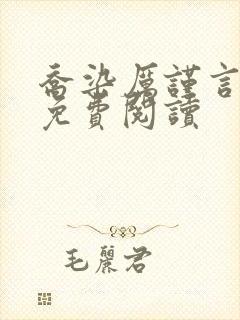 喬染厲謹言
免費閱讀
毛麗君